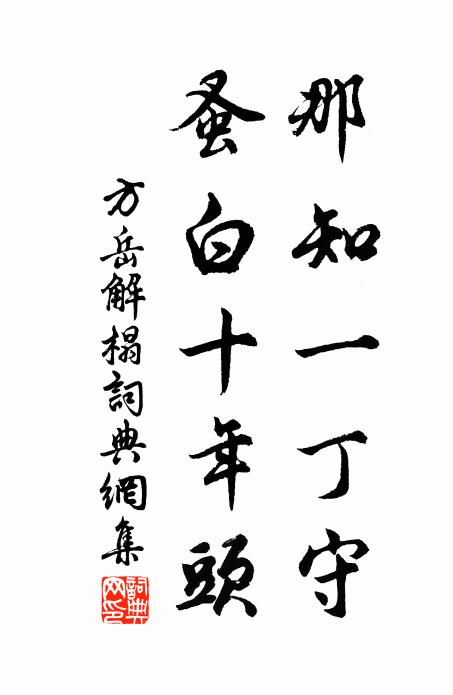 那知一丁守
蚤白十年頭
方岳解榻詞典網集
詞典网印